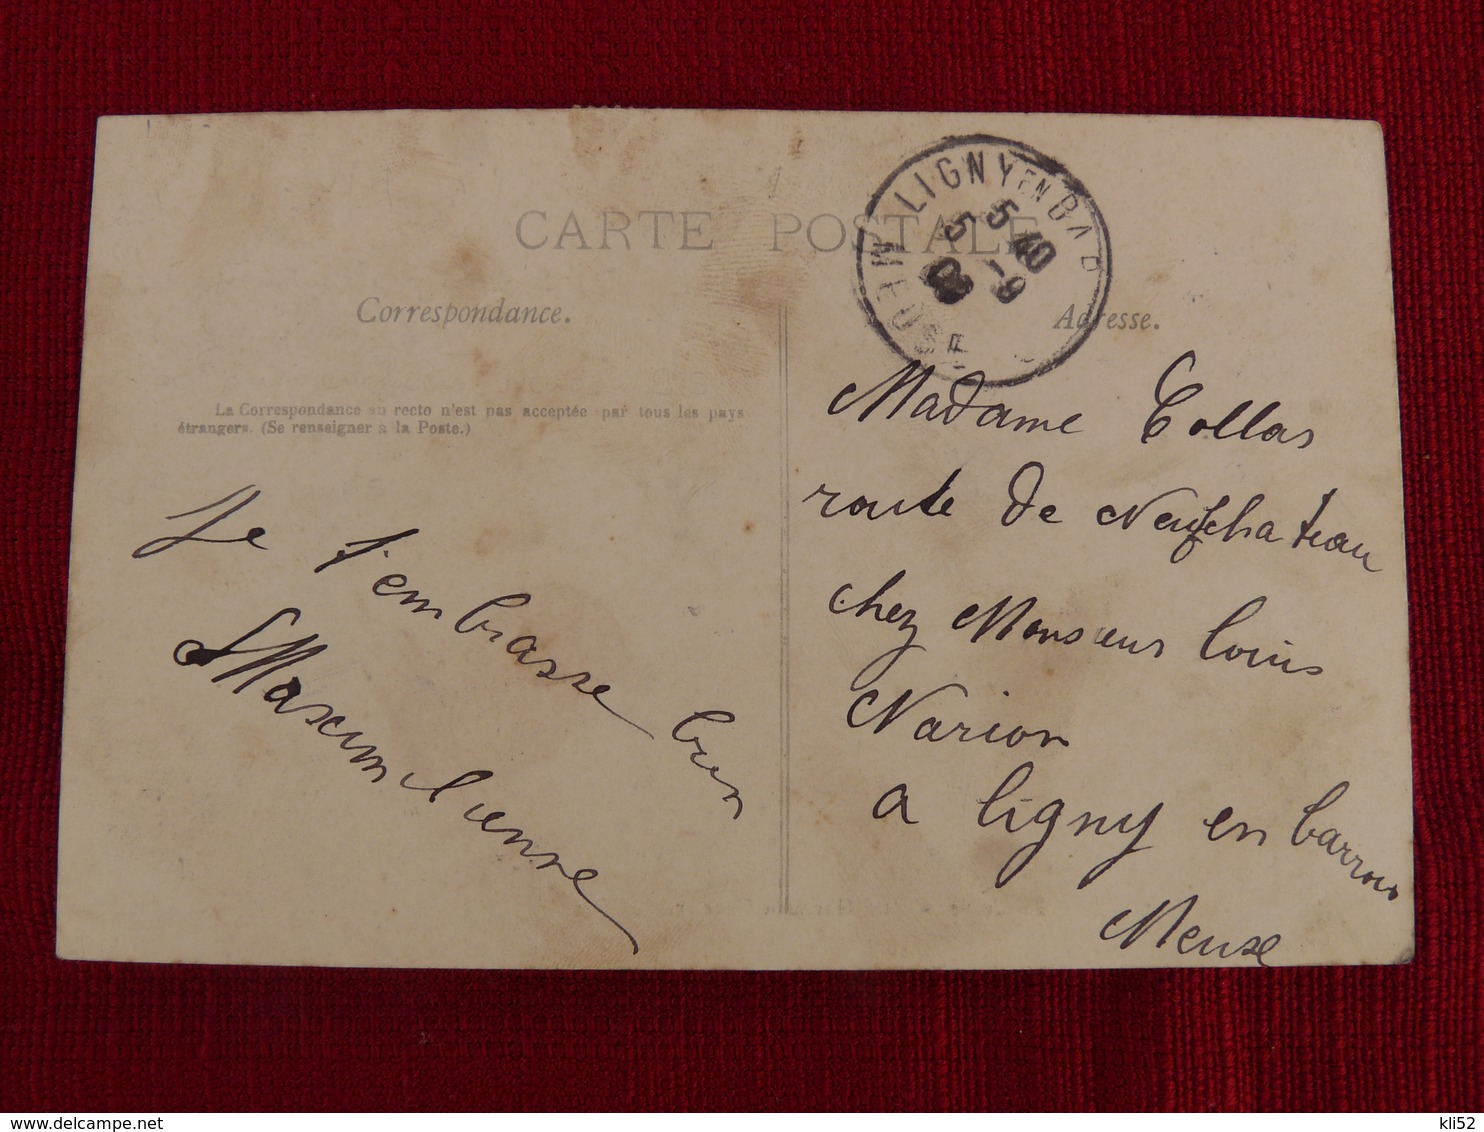 CARTE POSTALE
Correspondance.
Adresse.
La Correspondance au recto n'est pas acceptée par tous les pays
étrangers. (Se renseigner à la Poste.)
LIGNY EN BAR
MEUSE
5 40
5 -9
08
Je t'embrasse bien
Maximilienne
Madame Collas
route de Neufchateau
chez Monsieur Louis
Narion
a Ligny en barrois
Meuse
kli52